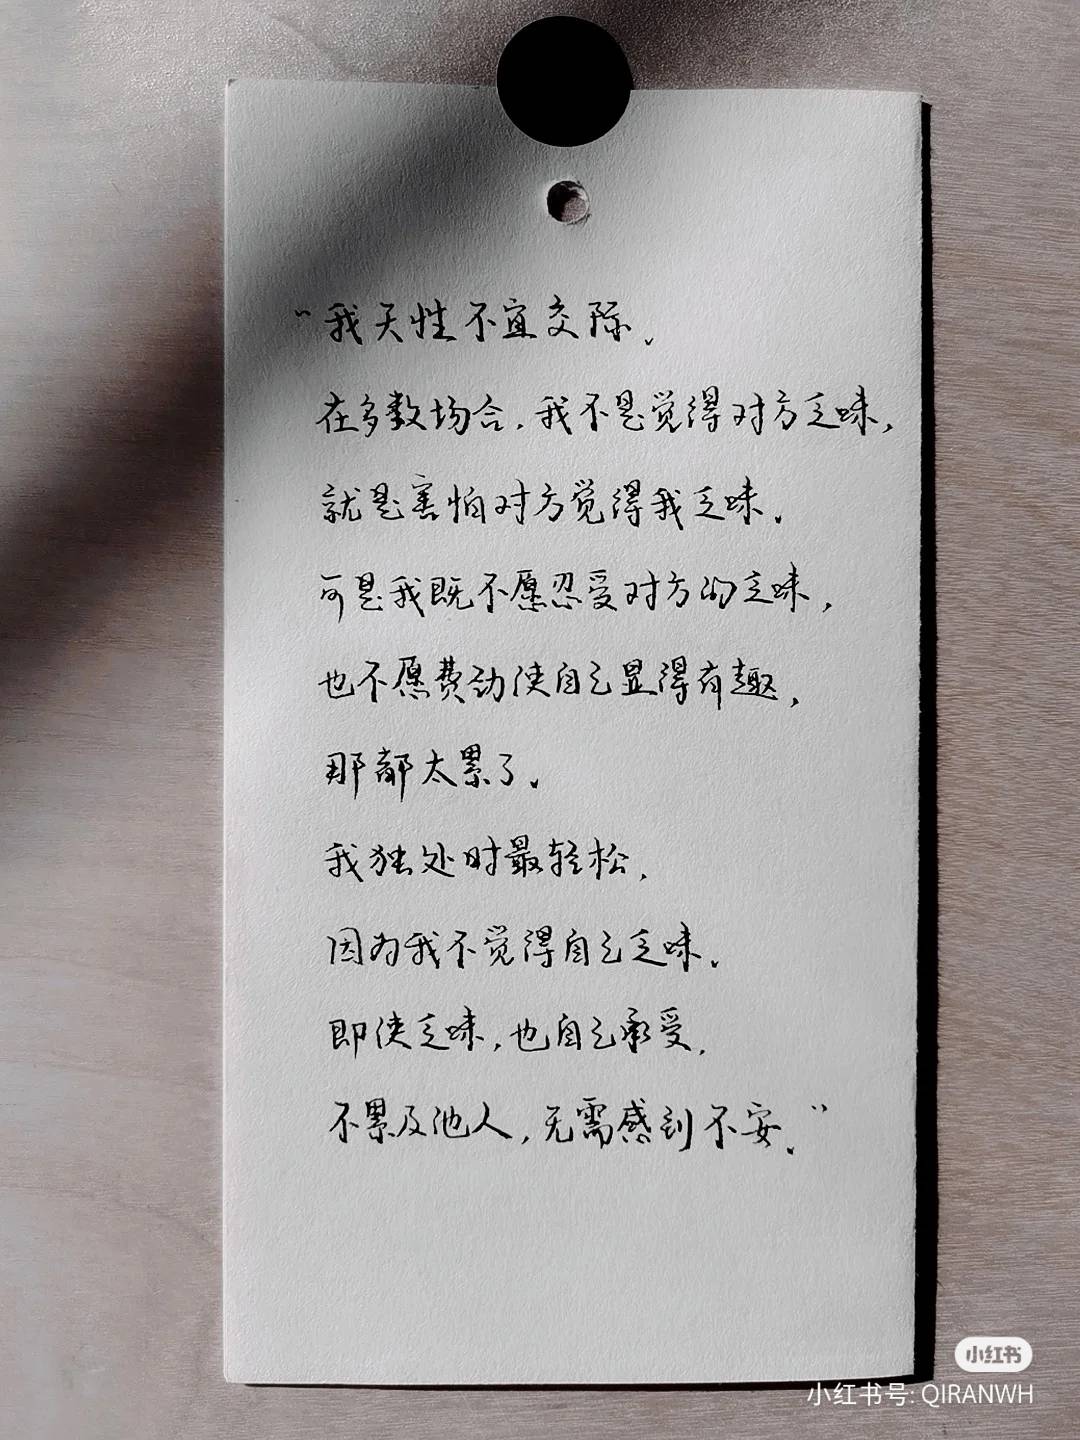 “我天性不宜交际.
在多数场合.我不是觉得对方乏味,
就是害怕对方觉得我乏味.
可是我既不愿忍受对方的乏味,
也不愿费劲使自己显得有趣,
那都太累了.
我独处时最轻松,
因为我不觉得自己乏味.
即使乏味,也自己承受,
不累及他人,无需感到不安.”
小红书
小红书号: QIRANWH